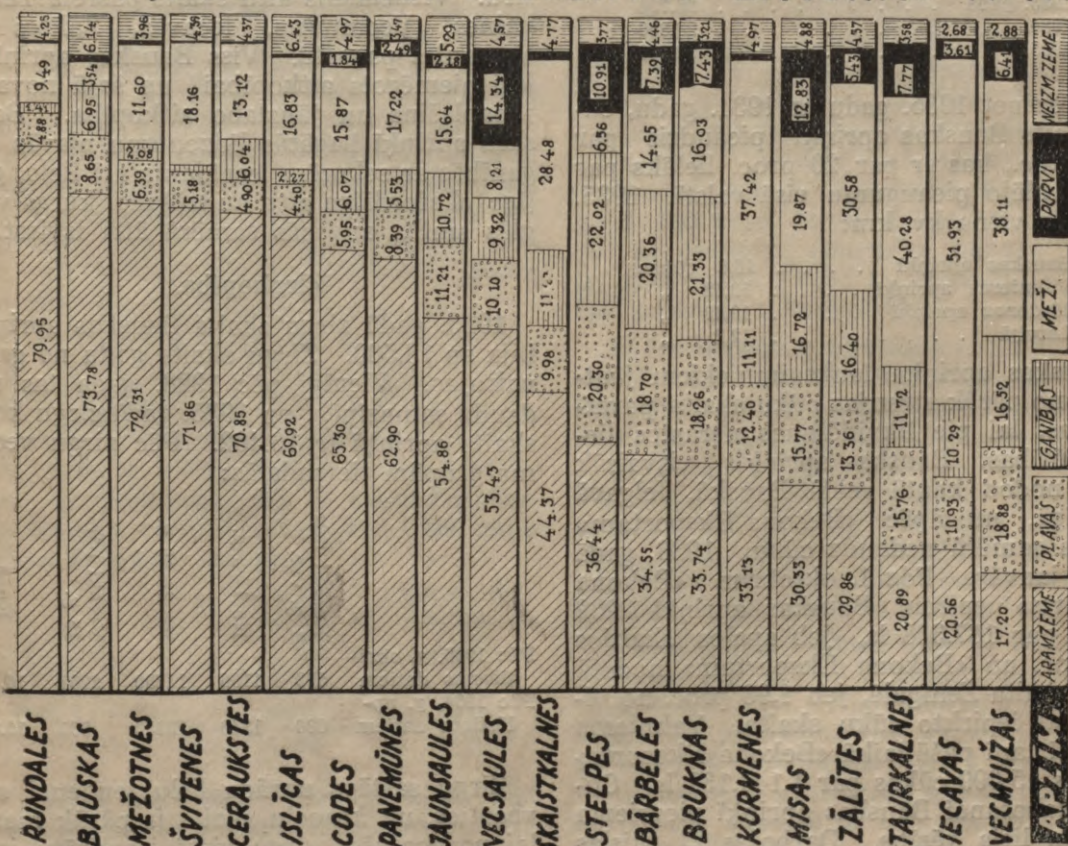 RUNDALES 79.95 4.88 1.43 9.49 4.25
BAUSKAS 73.78 8.65 6.95 3.54 6.14
MEŽOTNES 72.31 6.39 2.08 11.60 3.96
ŠVITENES 71.86 5.18 18.16 4.39
CERAUKSTES 70.85 4.90 6.04 13.12 4.37
ISLĪCAS 69.92 4.40 2.27 16.83 6.43
CODES 65.30 5.95 6.07 15.87 1.84 4.97
PANEMŪNES 62.90 8.39 5.53 17.22 2.49 3.47
JAUNSAULES 54.86 11.21 10.72 15.64 2.18 5.29
VECSAULES 53.43 10.10 9.32 8.21 14.34 4.57
SKAISTKALNES 44.37 9.98 28.48 4.77
STELPES 36.44 20.30 22.02 6.56 10.91 3.77
BĀRBELES 34.55 18.70 20.36 14.55 7.39 4.46
BRUKNAS 33.74 18.26 21.33 16.03 7.43 3.21
KURMENES 33.13 12.40 11.11 37.42 4.97
MISAS 30.33 15.77 16.72 19.87 12.83 4.88
ZĀLĪTES 29.86 13.36 16.40 30.58 5.43 4.37
TAURKALNES 20.89 15.76 11.72 40.28 7.77 3.58
IECAVAS 20.56 10.93 10.29 51.93 3.61 2.68
VECMUIŽAS 17.20 18.88 16.52 38.11 6.41 2.88
APZĪME ARAMZEME PLAVAS GANIBAS MEŽI PURVI NEIZM. ZEME